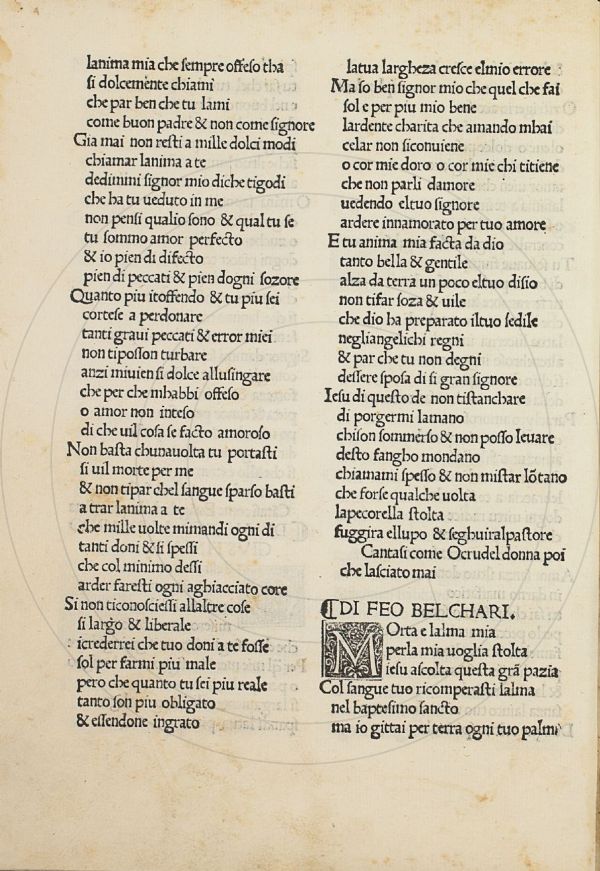 lanima mia che sempre offeso tha
si dolcemẽte chiami
che par ben che tu lami
come buon padre & non come signore
Gia mai non resti a mille dolci modi
chiamar lanima a te
dedimmi signor mio diche tigodi
che ha tu ueduto in me
non pensi qualio sono & qual tu se
tu sommo amor perfecto
& io pien di difecto
pien di peccati & pien dogni sozore
Quanto piu itoffendo & tu piu sei
cortese a perdonare
tanti graui peccati & error miei
non tiposson turbare
anzi miuien si dolce allusingare
che per che mhabbi offeso
o amor non inteso
di che uil cosa se facto amoroso
Non basta chunauolta tu portasti
si uil morte per me
& non tipar chel sangue sparso basti
a trar lanima a te
che mille uolte mimandi ogni di
tanti doni & si spessi
che col minimo dessi
arder faresti ogni aghiacciato core
Si non ticonosciessi allaltre cose
si largo & liberale
icrederrei che tuo doni a te fosse
sol per farmi piu male
pero che quanto tu sei piu reale
tanto son piu obligato
& essendone ingrato
latua largheza cresce elmio errore
Ma so ben signor mio che quel che fai
sol e per piu mio bene
lardente charita che amando mhai
celar non siconuiene
o cor mie doro o cor mie chi titiene
che non parli damore
uedendo eltuo signore
ardere innamorato per tuo amore
E tu anima mia facta da dio
tanto bella & gentile
alza da terra un poco eltuo disio
non tifar soza & uile
che dio ha preparato iltuo sedile
negliangelichi regni
& par che tu non degni
dessere sposa di si gran signore
Iesu di questo de non tistanchare
di porgermi lamano
chison sommerso & non posso leuare
desto fangho mondano
chiamami spesso & non mistar lõtano
che forse qualche uolta
lapecorella stolta
fuggira ellupo & seghuiralpastore
Cantasi come Ocrudel donna poi
che lasciato mai
❡DI FEO BELCHARI.
MOrta e lalma mia
perla mia uoglia stolta
iesu ascolta questa grã pazia
Col sangue tuo ricomperasti lalma
nel baptesimo sancto
ma io gittai per terra ogni tuo palmi